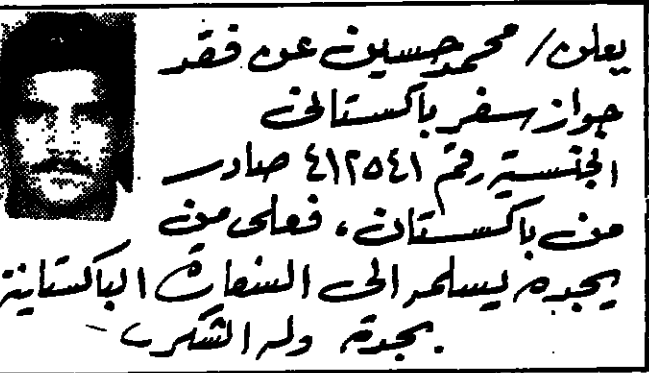 يعلن / محمد حسين عن فقد
جواز سفر باكستاني
الجنسية رقم ٤١٢٥٤١ صادر
من باكستان ، فعلى من
يجده يسلمه الى السفارة الباكستانية
بجدة وله الشكر -